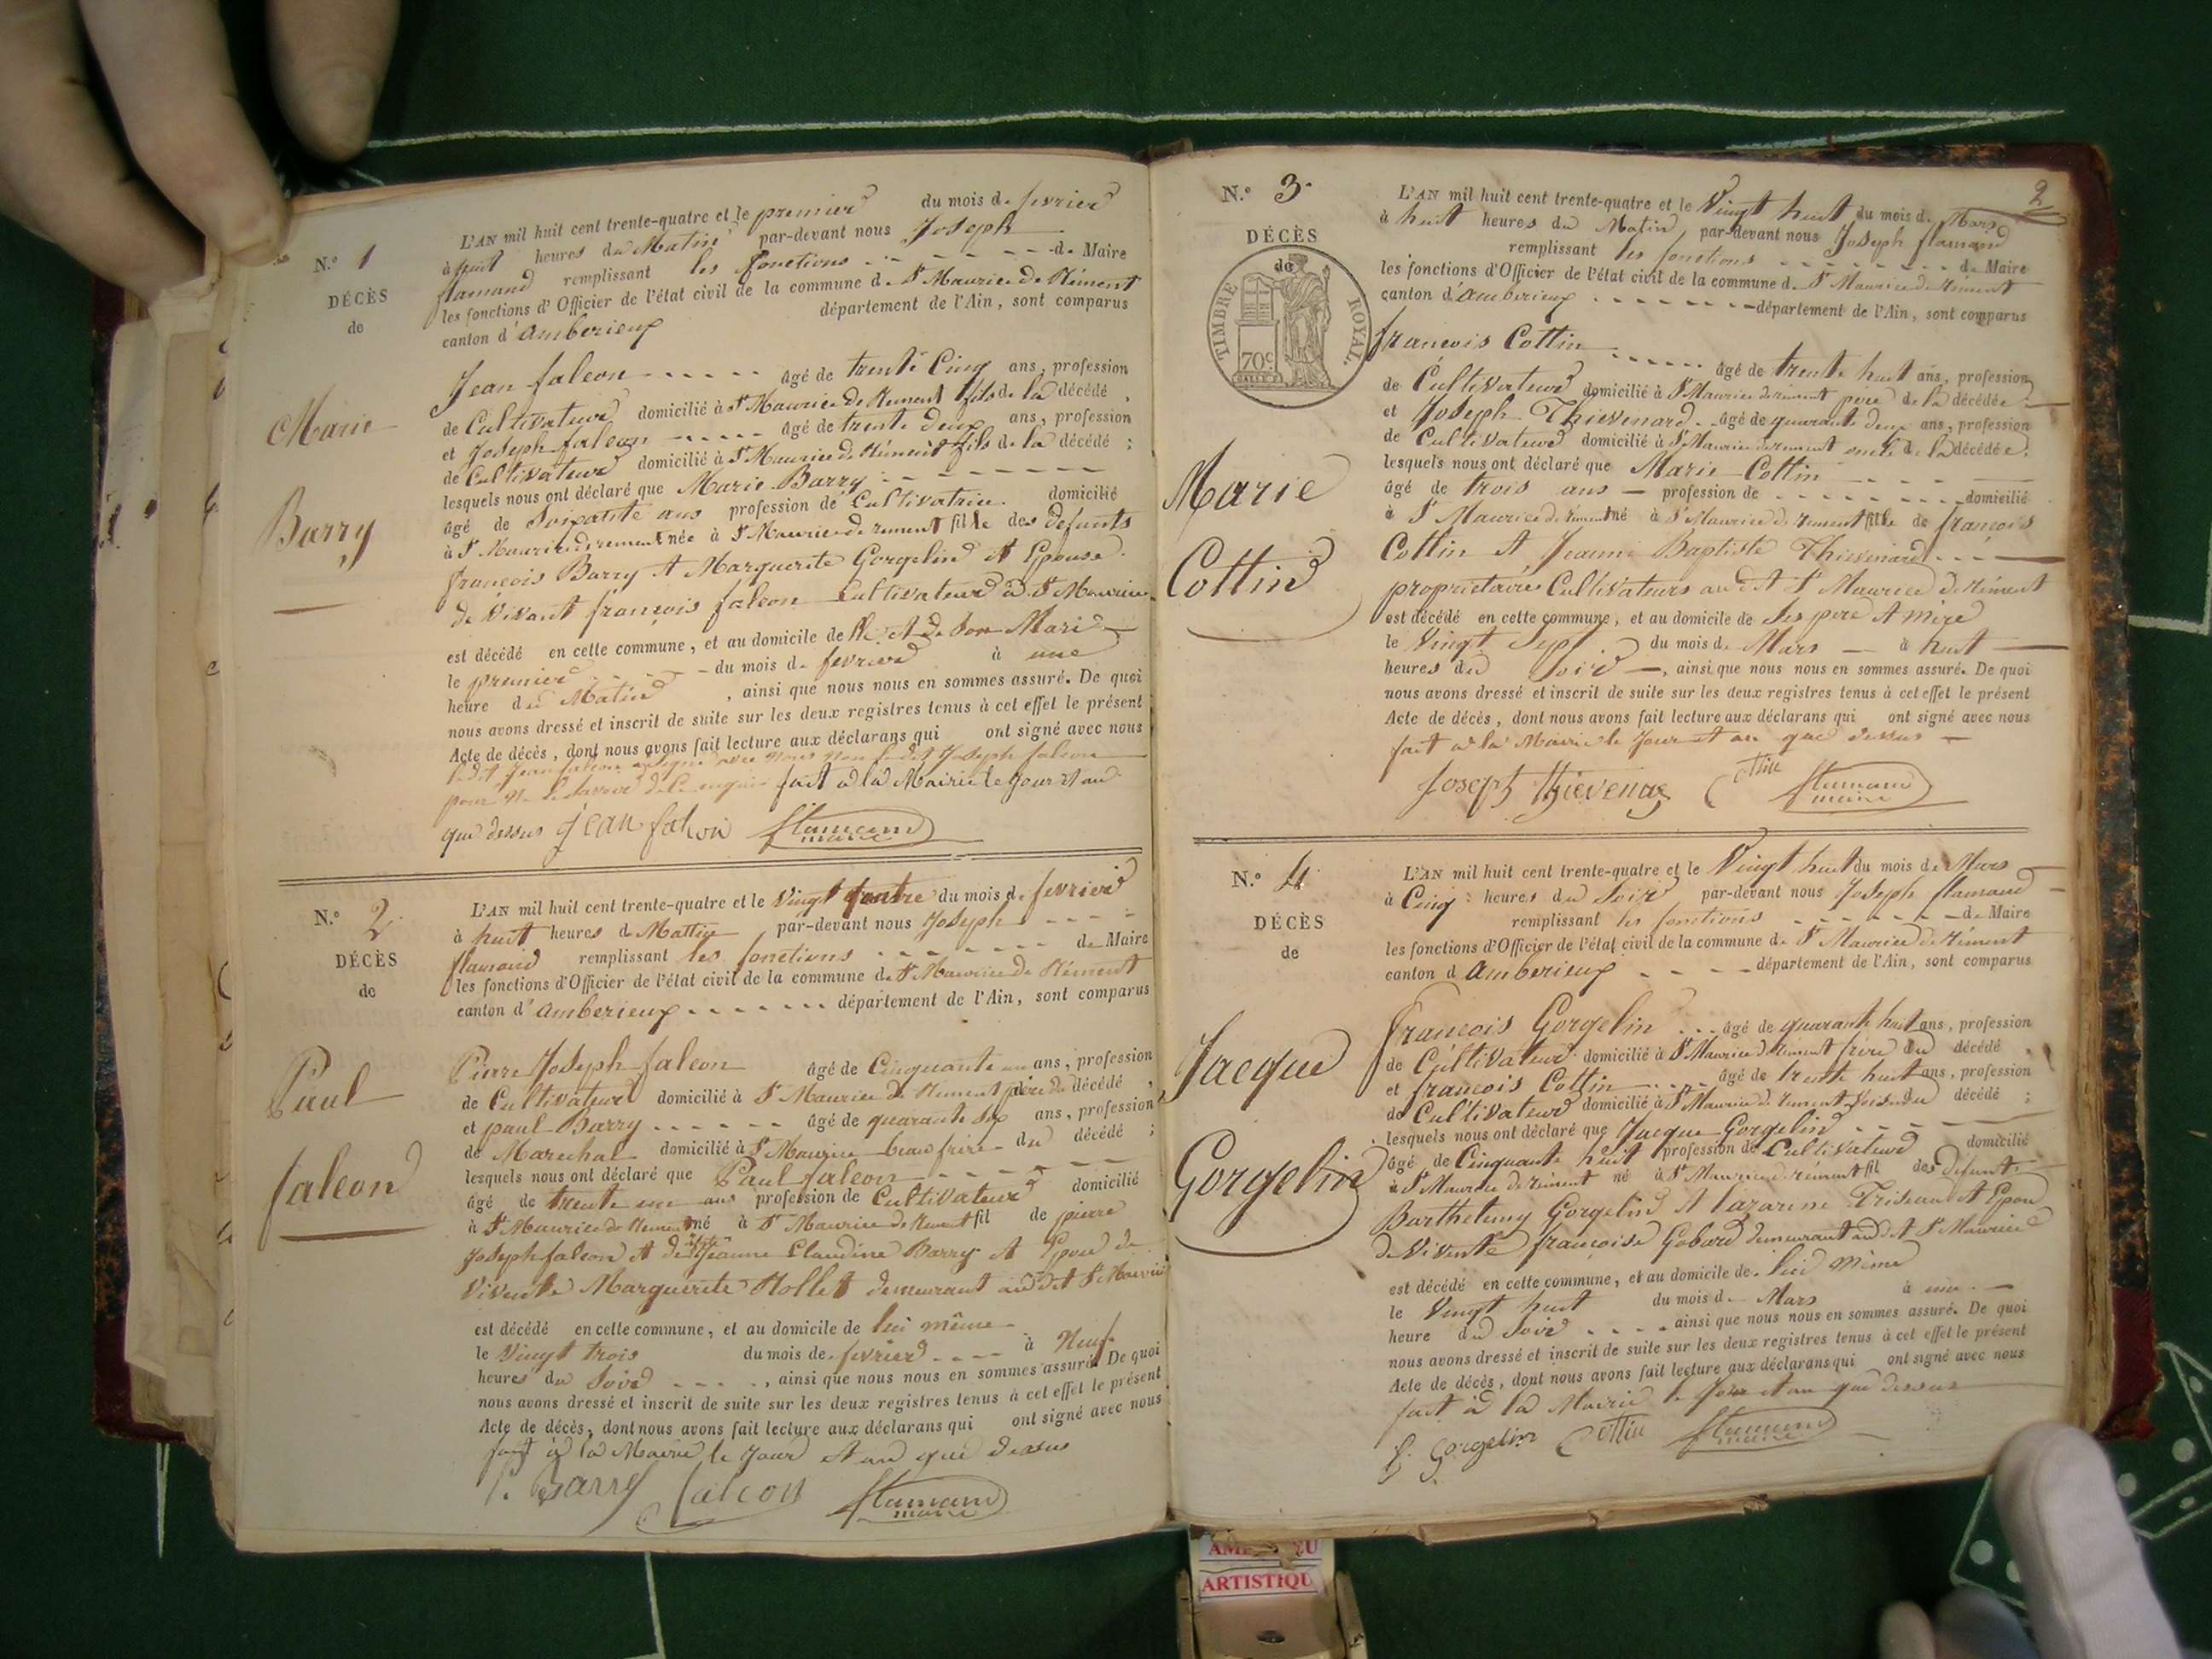 N.º 1
DÉCÈS
de
Marie
Barry
L'AN mil huit cent trente-quatre et le premier du mois de fevrier
à huit heures du Matin par-devant nous Joseph
flamand remplissant les fonctions de Maire
les fonctions d'Officier de l'état civil de la commune de St Maurice de Rément
canton d'amberieux département de l'Ain, sont comparus
Jean falcon âgé de trente Cinq ans, profession
de Cultivateur domicilié à St Maurice de Rement fils de la décédé,
et Joseph falcon âgé de trente deux ans, profession
de Cultivateur domicilié à St Maurice de Rément fils de la décédé;
lesquels nous ont déclaré que Marie Barry
âgé de Soixante ans profession de Cultivatrice domicilié
à St Maurice de rement née à St Maurice de rement fille des defunts
françois Barry et Marguerite Gorgelin et Epouse
de Vivant françois falcon Cultivateur à St Maurice
est décédé en cette commune, et au domicile de et de Son Mari
le premier du mois de fevrier à une
heure du Matin, ainsi que nous nous en sommes assuré. De quoi
nous avons dressé et inscrit de suite sur les deux registres tenus à cet effet le présent
Acte de décès, dont nous avons fait lecture aux déclarans qui ont signé avec nous
ledit Jean falcon a signé avec nous non ledit Joseph falcon
pour ne le savoir fait à la Mairie le jour et an
que dessus jean falcon flamand
maire
N.º 2
DÉCÈS
de
Paul
falcon
L'AN mil huit cent trente-quatre et le Vingt quatre du mois de fevrier
à huit heures d Mattin par-devant nous Joseph
flamand remplissant les fonctions de Maire
les fonctions d'Officier de l'état civil de la commune de St Maurice de Rément
canton d'amberieux département de l'Ain, sont comparus
Pierre Joseph falcon âgé de Cinquante ans, profession
de Cultivateur domicilié à St Maurice de Rement père du décédé,
et paul Barry âgé de quarante ans, profession
de Marechal domicilié à St Maurice beau frère du décédé;
lesquels nous ont déclaré que Paul falcon
âgé de trente un ans profession de Cultivateur domicilié
à St Maurice de Rement né à St Maurice de Rement fil de pierre
Joseph falcon et de Jeanne Claudine Barry et Epoux de
Vivente Marguerite Mollet demeurant audit St Maurice
est décédé en cette commune, et au domicile de lui même
le Vingt trois du mois de fevrier à Neuf
heures du Soir, ainsi que nous nous en sommes assuré. De quoi
nous avons dressé et inscrit de suite sur les deux registres tenus à cet effet le présent
Acte de décès, dont nous avons fait lecture aux déclarans qui ont signé avec nous
fait à la Mairie le Jour et an que dessus
P. Barry falcon flamand
maire
2
N.º 3
DÉCÈS
de
TIMBRE ROYAL
70c
Marie
Cottin
L'AN mil huit cent trente-quatre et le Vingt huit du mois de Mars
à huit heures du Matin par-devant nous Joseph flamand
remplissant les fonctions de Maire
les fonctions d'Officier de l'état civil de la commune de St Maurice de Rément
canton d'amberieux département de l'Ain, sont comparus
francois Cottin âgé de trente huit ans, profession
de Cultivateur domicilié à St Maurice de rement pere de la décédée
et Joseph Thievenard âgé de quarante deux ans, profession
de Cultivateur domicilié à St Maurice de rement oncle de la décédée;
lesquels nous ont déclaré que Marie Cottin
âgé de trois ans profession de domicilié
à St Maurice de rement né à St Maurice de rement fille de françois
Cottin et Jeanne Baptiste Thievenard
propriétaires Cultivateurs audit St Maurice de Rément
est décédé en cette commune, et au domicile de Ses pere et mère
le Vingt Sept du mois de Mars à huit
heures du Soir, ainsi que nous nous en sommes assuré. De quoi
nous avons dressé et inscrit de suite sur les deux registres tenus à cet effet le présent
Acte de décès, dont nous avons fait lecture aux déclarans qui ont signé avec nous
fait à la Mairie le Jour et an que dessus
Joseph Cottin flamand
maire
N.º 4
DÉCÈS
de
Jacque
Gorgelin
L'AN mil huit cent trente-quatre et le Vingt huit du mois de Mars
à Cinq heures du Soir par-devant nous Joseph flamand
remplissant les fonctions de Maire
les fonctions d'Officier de l'état civil de la commune de St Maurice de Rément
canton d amberieux département de l'Ain, sont comparus
francois Gorgelin âgé de quarante huit ans, profession
de Cultivateur domicilié à St Maurice de Rement frère du décédé,
et francois Cottin âgé de trente huit ans, profession
de Cultivateur domicilié à St Maurice de rement voisin du décédé;
lesquels nous ont déclaré que Jacque Gorgelin
âgé de Cinquante huit profession de Cultivateur domicilié
à St Maurice de rement né à St Maurice de rément fil des défunts
Barthelemy Gorgelin et lazarine et Epoux
de Vivente françoise Gobard demeurant audit St Maurice
est décédé en cette commune, et au domicile de lui même
le Vingt huit du mois d Mars à une
heure du Soir ainsi que nous nous en sommes assuré. De quoi
nous avons dressé et inscrit de suite sur les deux registres tenus à cet effet le présent
Acte de décès, dont nous avons fait lecture aux déclarans qui ont signé avec nous
fait à la Mairie le Jour et an que dessus
f. Gorgelin Cottin flamand
maire
ARTISTIQU